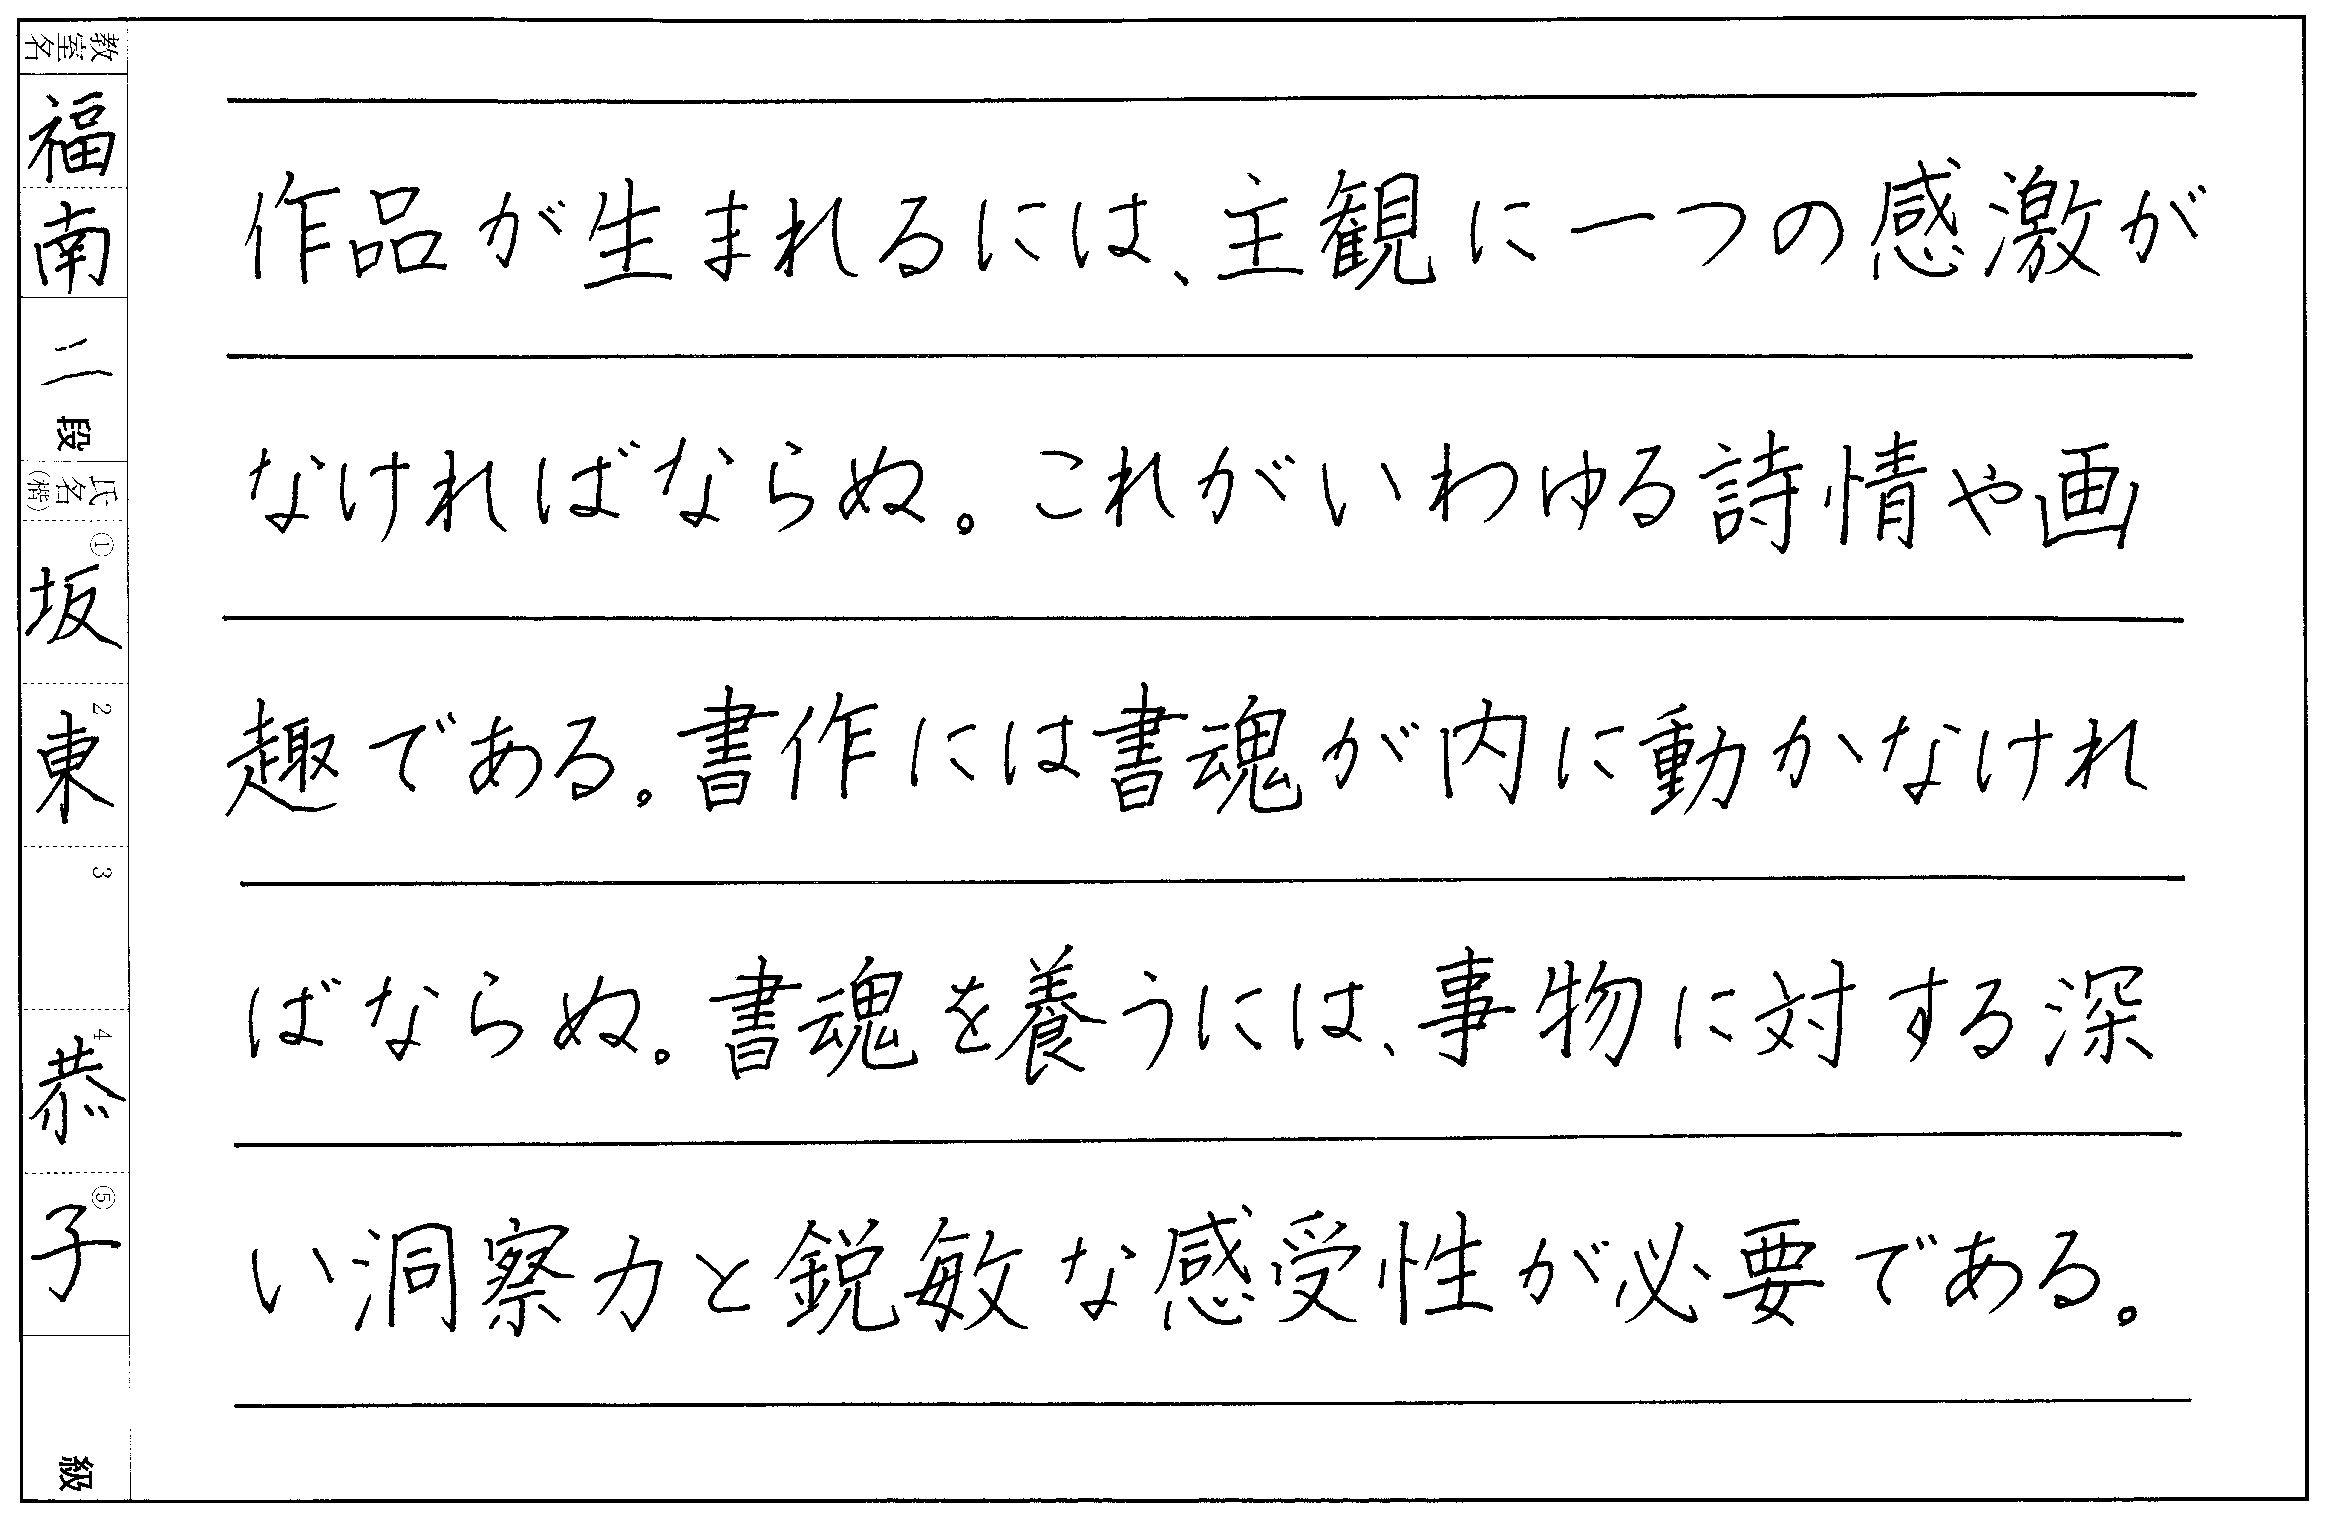 教室名
福南
二段
氏名(楷)
① 坂
2 東
3
4 恭
⑤ 子
級
作品が生まれるには、主観に一つの感激が
なければならぬ。これがいわゆる詩情や画
趣である。書作には書魂が内に動かなけれ
ばならぬ。書魂を養うには、事物に対する深
い洞察力と鋭敏な感受性が必要である。